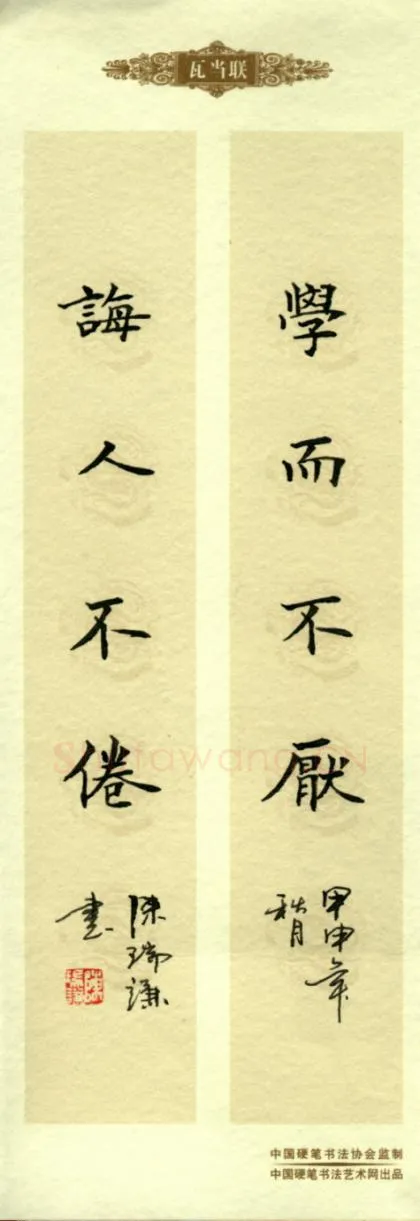 瓦当联
學而不厭
甲申年
秋月
誨人不倦
陳瑞謙
書
中国硬笔书法协会监制
中国硬笔书法艺术网出品